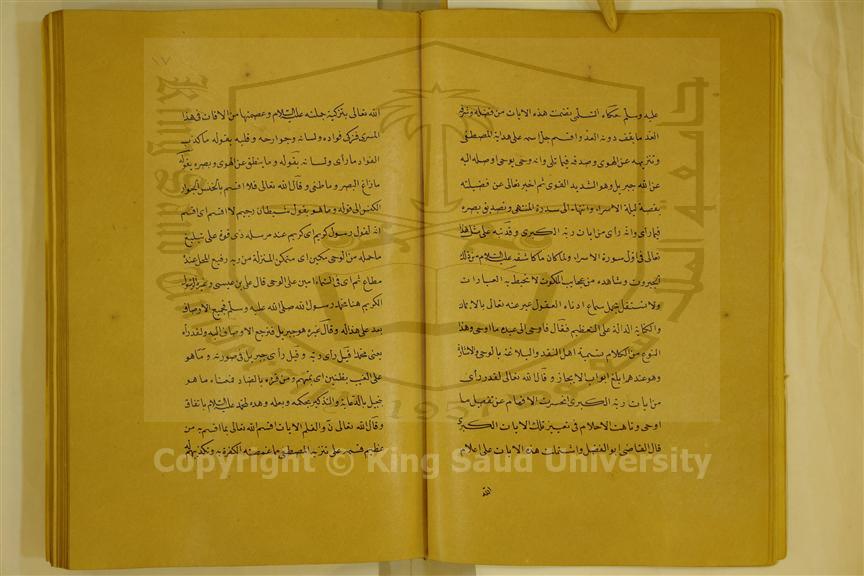 عليه وسلم حكاه السلمي تضمنت هذه الآيات من فضله وشرفه
العد ما يقف دونه العد واقسم جل اسمه على هداية المصطفى
وتنزيهه عن الهوى وصدقه فيما تلى وانه وحى يوحى اوصله اليه
عن الله جبريل وهو الشديد القوى ثم اخبر تعالى عن فضيلته
بقصة ليلة الاسراء وانتهائه الى سدرة المنتهى وتصديق بصره
فيما رأى وانه رأى من ايات ربه الكبرى وقد نبه على مثل هذا
تعالى في اول سورة الاسراء ولما كان ما كاشفه عليه السلام من ذلك
الجبروت وشاهده من عجايب الملكوت لا تحيط به العبارات
ولا تستقل بحمل سماع ادناه العقول عبر عنه تعالى بالايماء
والكناية الدالة على التعظيم فقال فاوحى الى عبده ما اوحى وهذا
النوع من الكلام يسميه اهل النقد والبلاغة بالوحي والاشارة
وهو عندهم ابلغ ابواب الايجاز وقال الله تعالى لقد رأى
من ايات ربه الكبرى انحسرت الافهام عن تفصيل ما
اوحى وتاهت الاحلام في تعيين تلك الايات الكبرى
قال القاضى ابو الفضل واشتملت هذه الايات على اعلام
الله
١٧
الله تعالى بتزكية جملته عليه السلام وعصمتها من الافات في هذا
المسرى فزكى فؤاده ولسانه وجوارحه وقلبه بقوله ما كذب
الفواد ما رأى ولسانه بقوله وما ينطق عن الهوى وبصره بقوله
ما زاغ البصر وما طغى وقال الله تعالى فلا اقسم بالخنس الجوار
الكنس الى قوله وما هو بقول شيطان رجيم لا اقسم اى اقسم
انه لقول رسول كريم اى كريم عند مرسله ذى قوة على تبليغ
ما حمله من الوحى مكين اى متمكن المنزلة من ربه رفيع المحل عنده
مطاع ثم اى في السماء امين على الوحى قال على بن عيسى وغيره الرسول
الكريم هنا محمد رسول الله صلى الله عليه وسلم فجميع الاوصاف
بعد على هذا له وقال غيره هو جبريل فترجع الاوصاف اليه ولقد رآه
يعنى محمدا قيل رأى ربه وقيل رأى جبريل في صورته وما هو
على الغيب بظنين اى بمتهم ومن قرءه بالضاد فمعناه ما هو
ببخيل بالدعاء به والتذكير بحكمه وبعلمه وهذه لمحمد عليه السلام باتفاق
وقال الله تعالى ن والقلم الايات اقسم الله تعالى بما اقسم به من
عظيم قسمه على تنزيه المصطفى مما غمصته الكفرة به وتكذيبهم له
King Saud University
جامعة الملك سعود
1957
Copyright © King Saud University